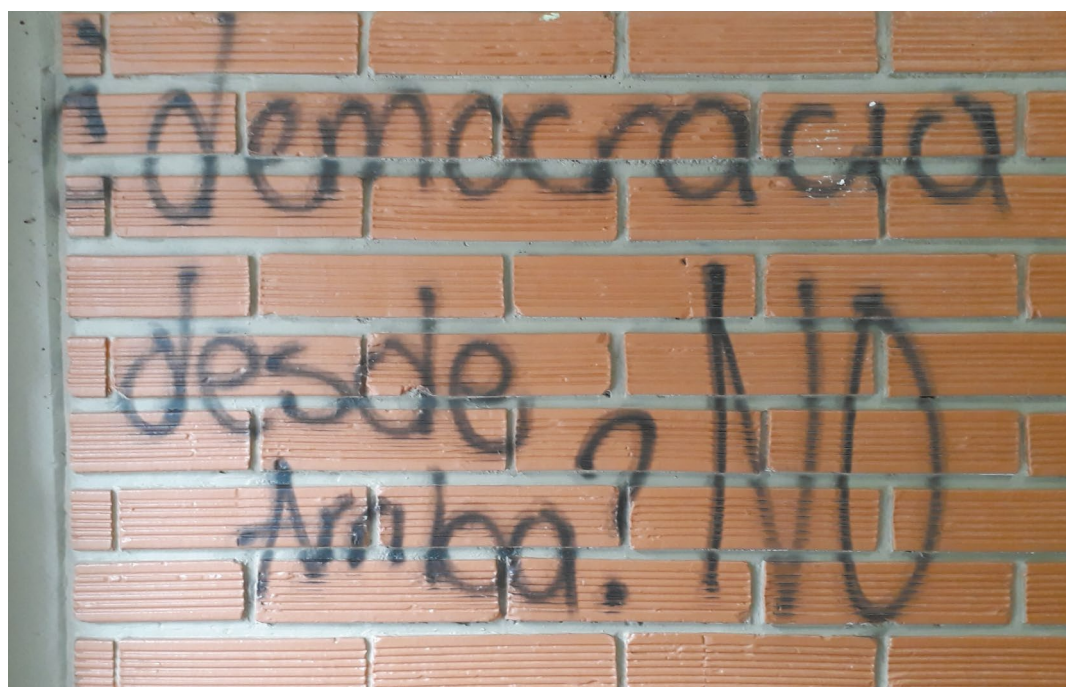 ¿democracia
desde
Arriba? NO